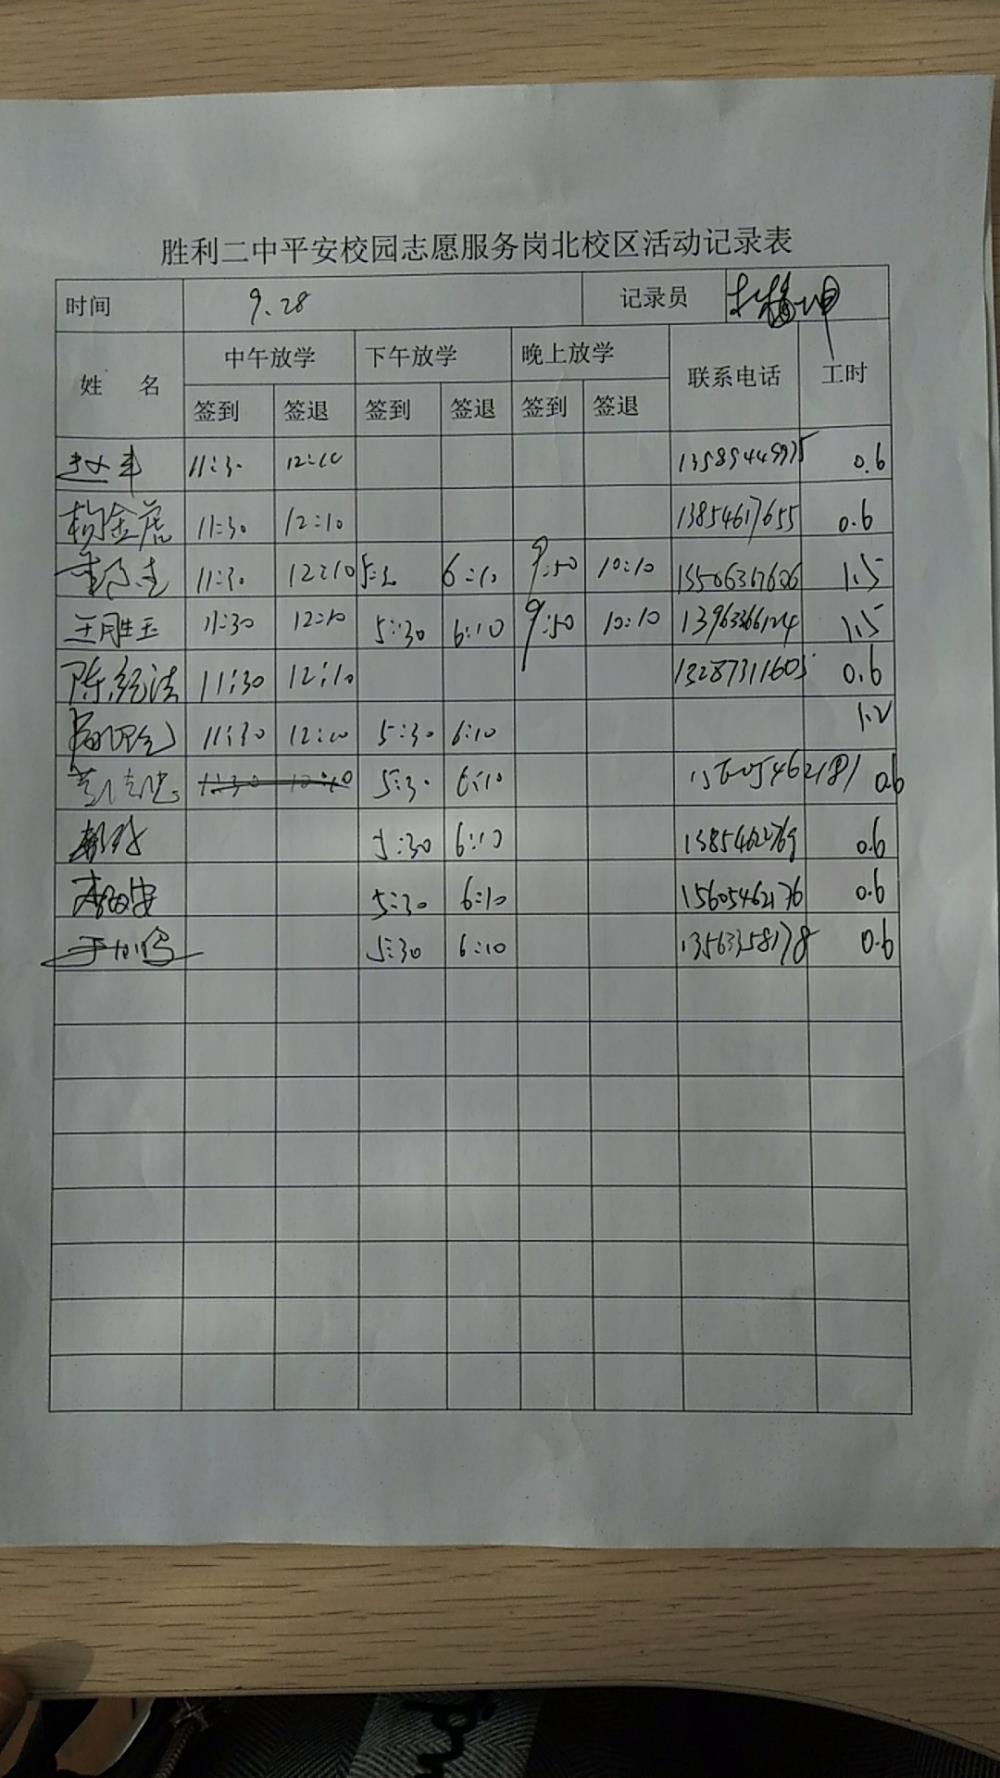 胜利二中平安校园志愿服务岗北校区活动记录表
时间 9.28 记录员
姓 名 中午放学 下午放学 晚上放学 联系电话 工时
签到 签退 签到 签退 签到 签退
11:30 12:10 0.6
杨金虎 11:30 12:10 13854617655 0.6
11:30 12:10 5:30 6:10 9:50 10:10 1.5
王胜玉 11:30 12:10 5:30 6:10 9:50 10:10 1.5
陈经法 11:30 12:10 13287311605 0.6
11:30 12:10 5:30 6:10 1.2
11:30 12:10 5:30 6:10 15605462181 0.6
5:30 6:10 0.6
5:30 6:10 15605462176 0.6
5:30 6:10 13563358178 0.6